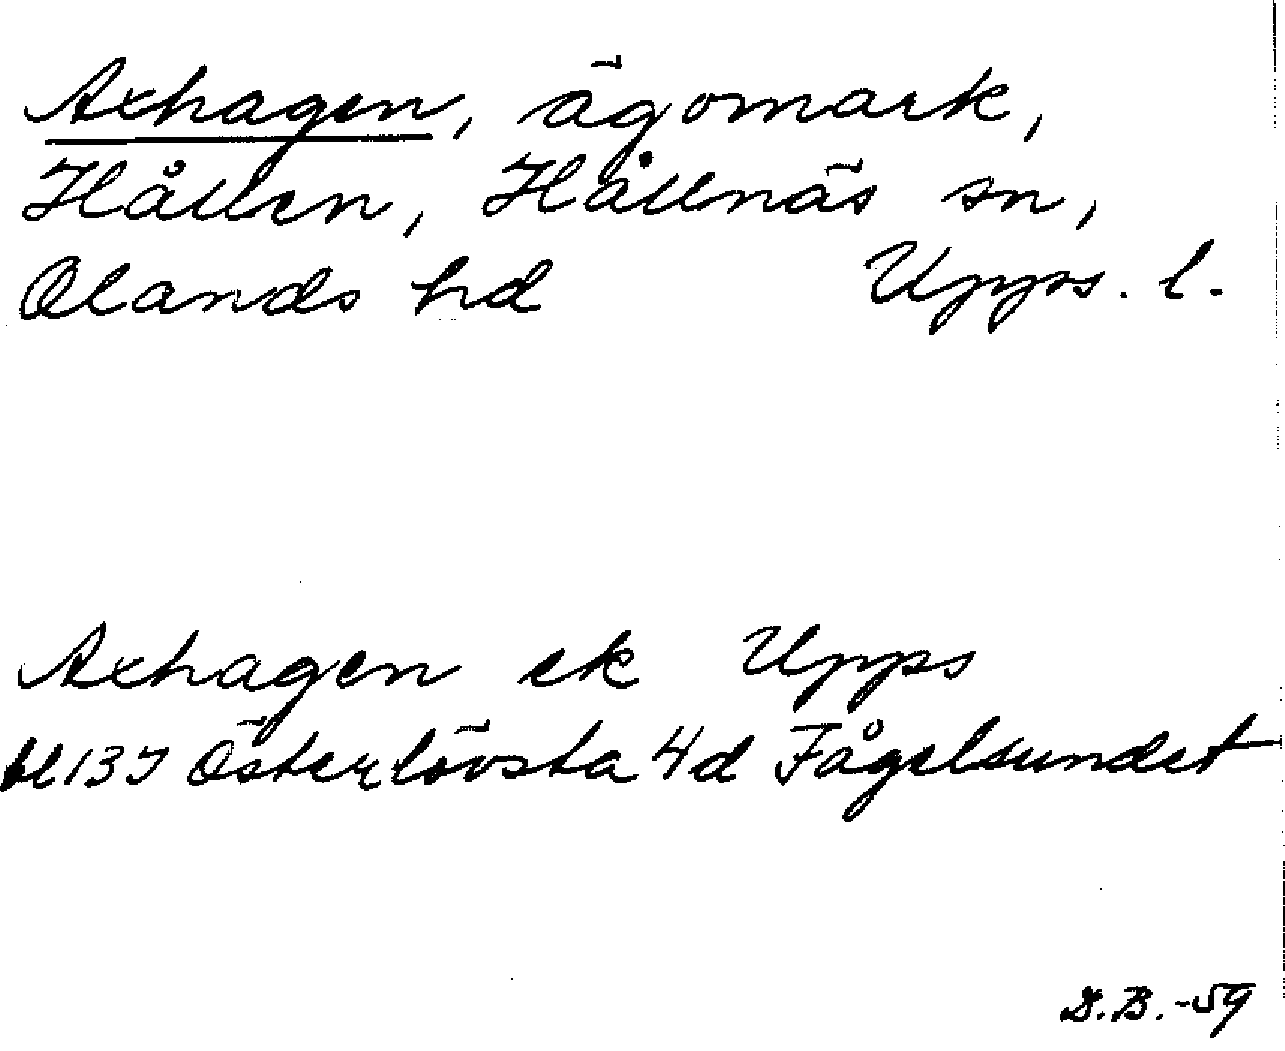 Axhagen, ägomark,
Hållen, Hållnäs sn,
Olands hd Upps. l.
Axhagen ek Upps
bl 13I Österlövsta 4d Fågelsundet
D.B.-59